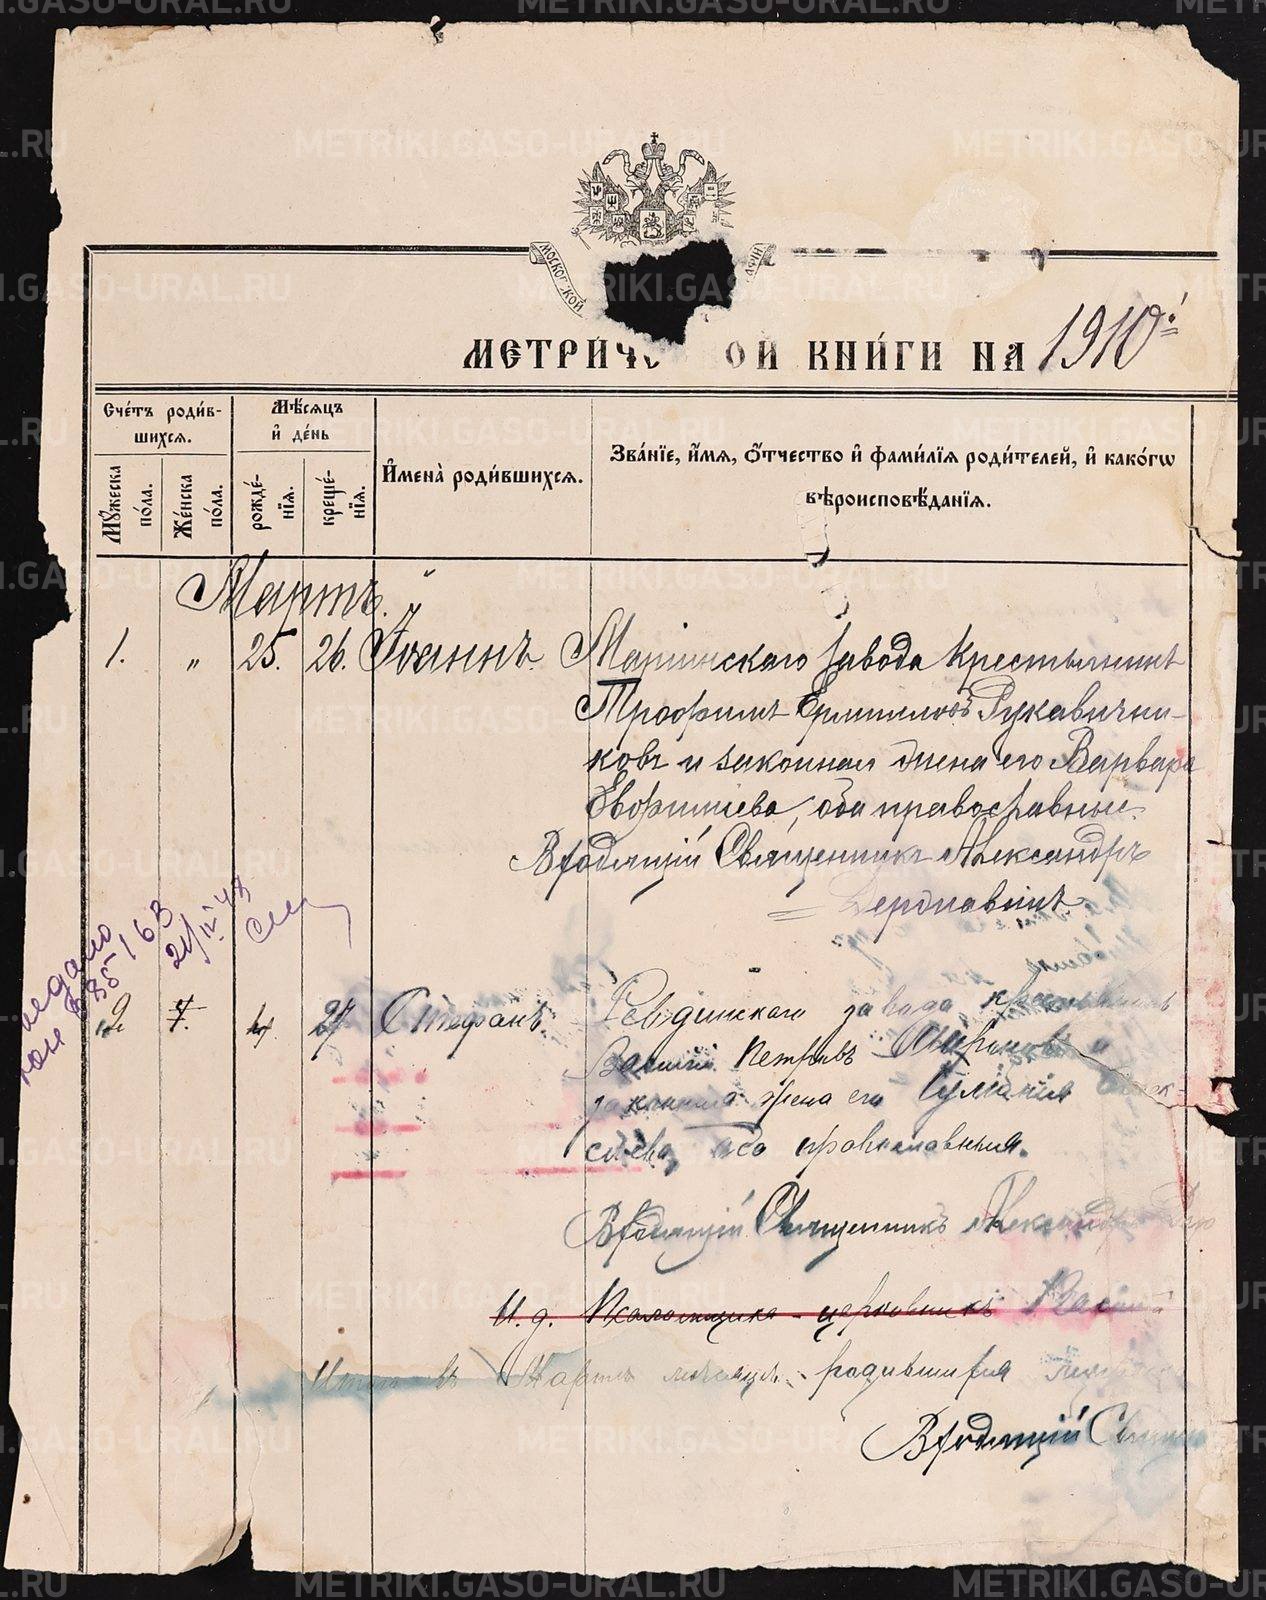 МОСКОВСКОЙ
МЕТРИЧ ОЙ КНИГИ НА 1910
Счетъ родившихся.
Мѣсяцъ и день
Имена родившихся.
Званіе, имя, отчество и фамилія родителей, и какогѡ
вѣроисповѣданія.
Мужеска пола.
Женска пола.
рожденія.
крещенія.
Мартъ.
1. „ 25. 26. Іоаннъ. Маріинскаго завода крестьянинъ
Трофимъ Ермиловъ Рукавични-
ковъ и законная жена его Варвара
Евфимиева, оба православные.
Входящій Священникъ Александръ
Державинъ
685163
21/IV 43
2. 27 Стефанъ. Ревдинскаго завода крестьянинъ
Василій Петровъ и
законная жена его
оба православныя.
Входящій Священникъ Александръ
И. д. Псаломщика-церковникъ
Итого въ Мартѣ мѣсяцѣ родившихся
Входящій
METRIKI.GASO-URAL.RU